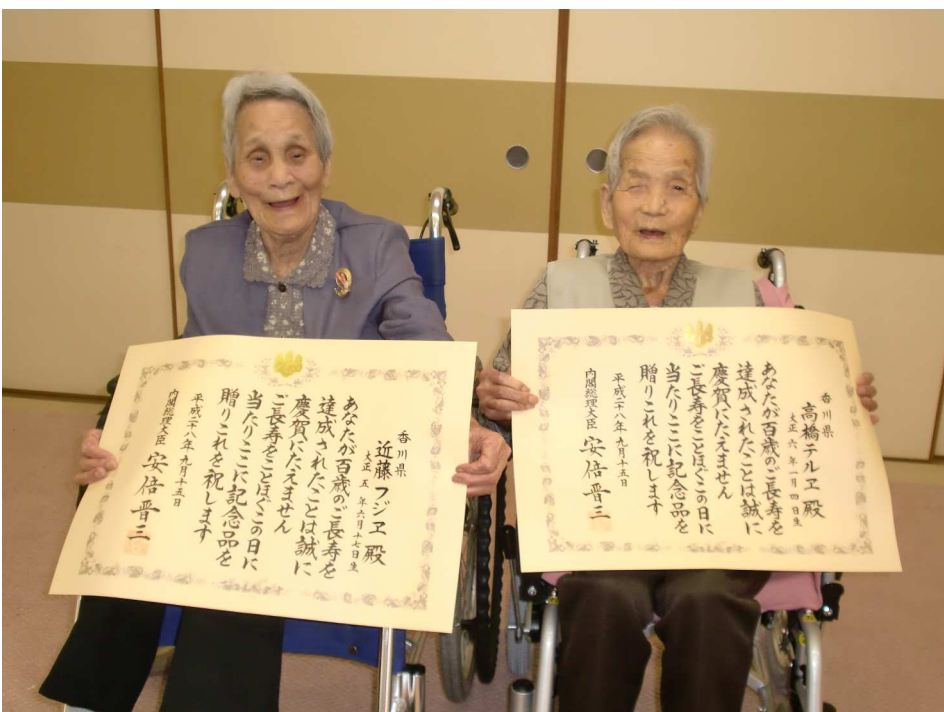 香川県
近藤フジヱ殿
大正五年六月十七日生
あなたが百歳のご長寿を
達成されたことは誠に
慶賀にたえません
ご長寿をことほぐこの日に
当たりここに記念品を
贈りこれを祝します
平成二十八年九月十五日
内閣総理大臣 安倍晋三
香川県
高橋テルヱ殿
大正六年一月四日生
あなたが百歳のご長寿を
達成されたことは誠に
慶賀にたえません
ご長寿をことほぐこの日に
当たりここに記念品を
贈りこれを祝します
平成二十八年九月十五日
内閣総理大臣 安倍晋三